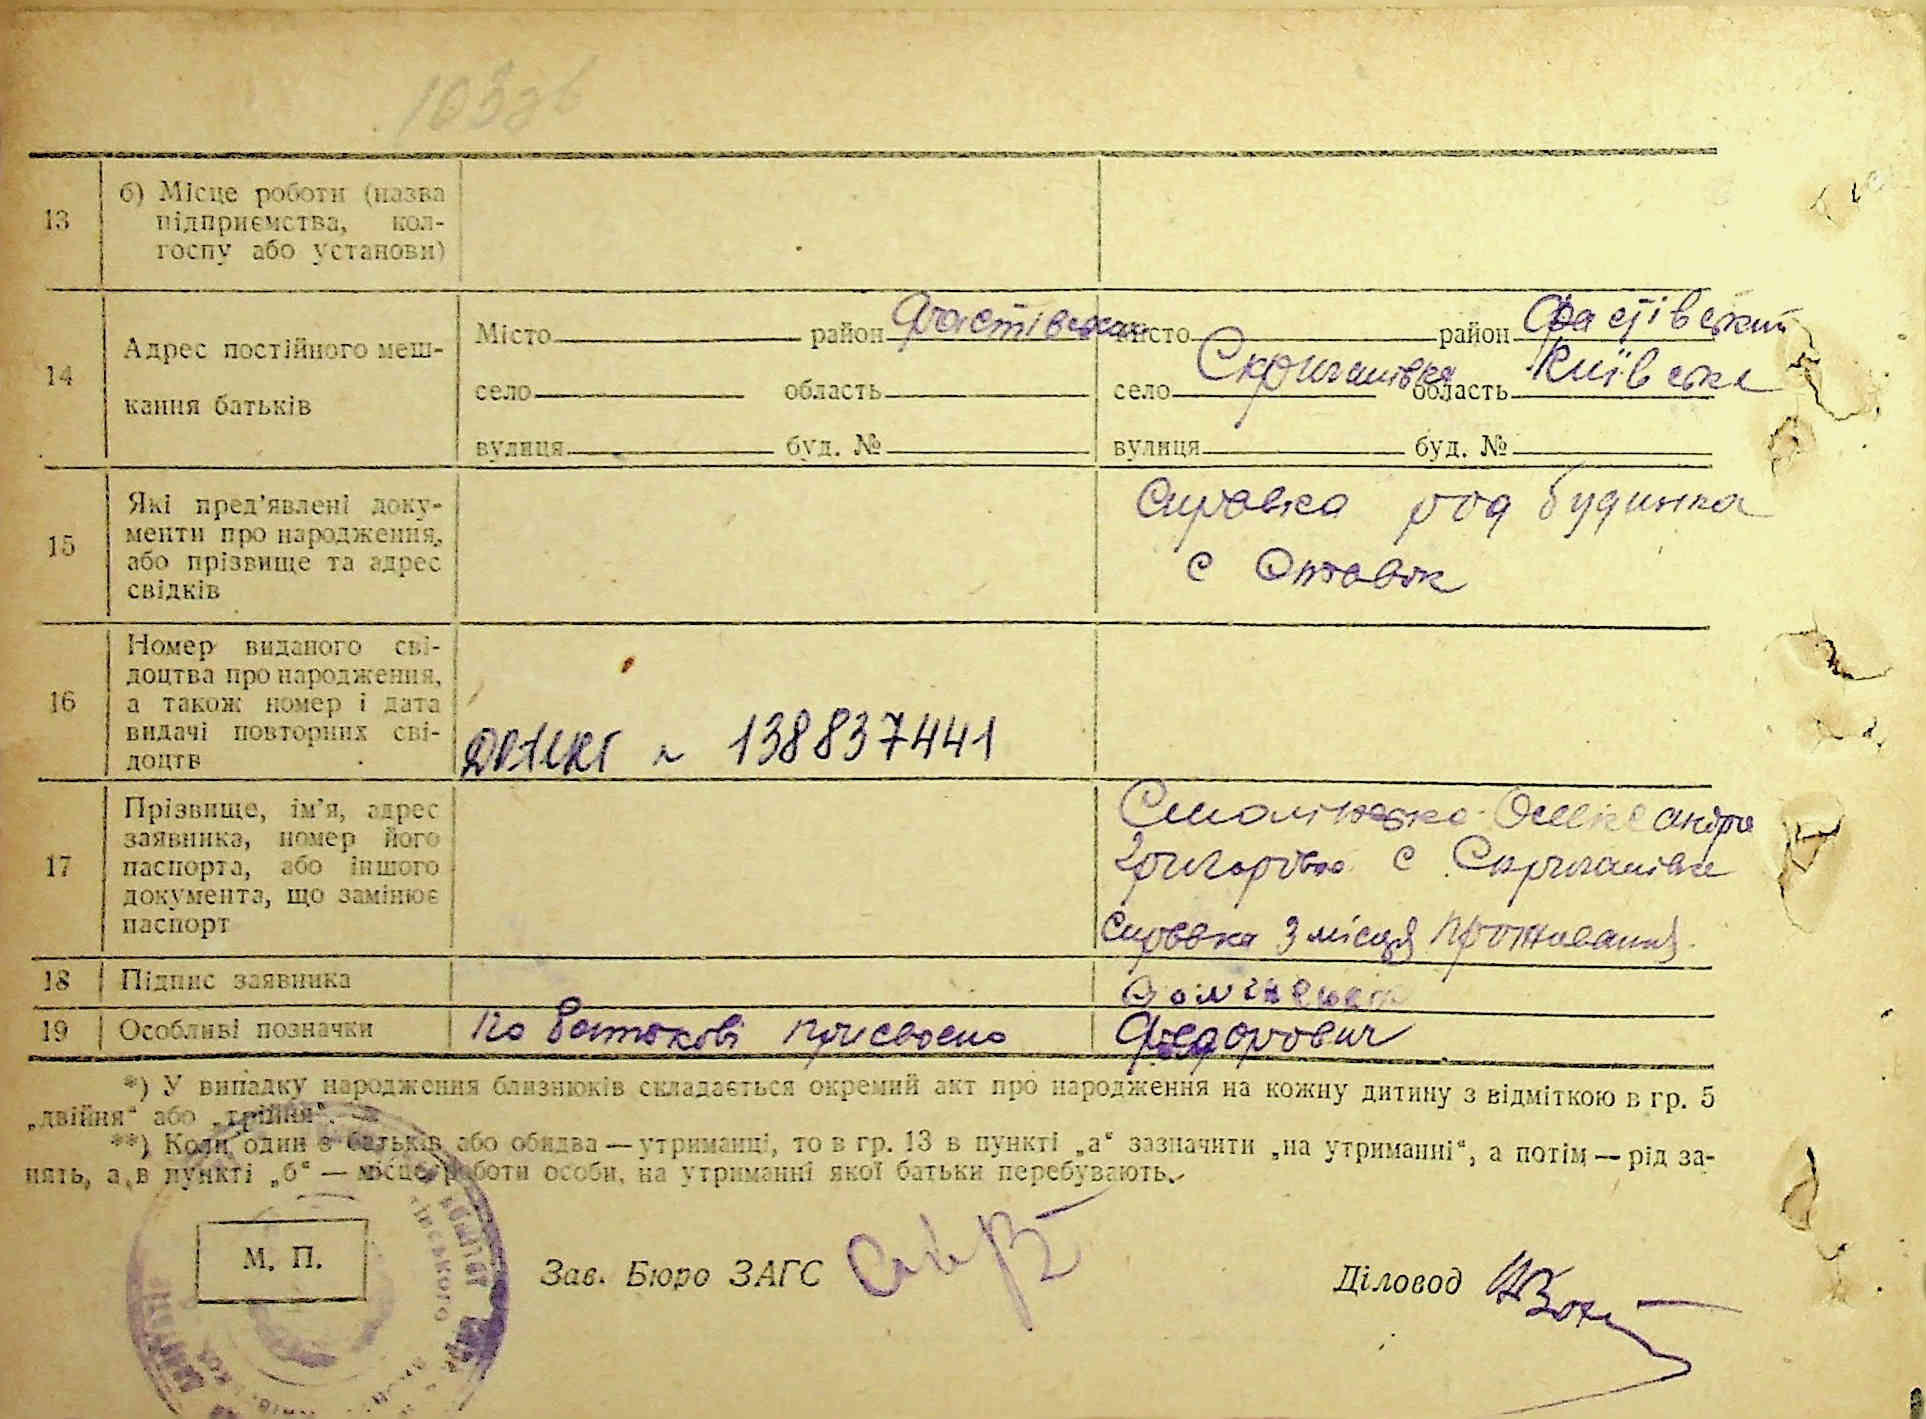 13
б) Місце роботи (назва
підприємства, кол-
госпу або установи)
14
Адрес постійного меш-
кання батьків
Місто район Фастівський
село область
вулиця буд. №
місто район Фастівський
село Скригалівка область Київська
вулиця буд. №
15
Які пред'явлені доку-
менти про народження,
або прізвище та адрес
свідків
Справка род будинка
с Оптовок
16
Номер виданого сві-
доцтва про народження,
а також номер і дата
видачі повторних сві-
доцтв
138837441
17
Прізвище, ім'я, адрес
заявника, номер його
паспорта, або іншого
документа, що замінює
паспорт
Олександра
Григорівна с Скригалівка
справка з місця проживання
18
Підпис заявника
19
Особливі позначки
По батькові присвоєно Федорович
*) У випадку народження близнюків складається окремий акт про народження на кожну дитину з відміткою в гр. 5
„двійня" або „трійня".
**) Коли один з батьків або обидва — утриманці, то в гр. 13 в пункті „а" зазначити „на утриманні", а потім — рід за-
нять, а в пункті „б" — місце роботи особи, на утриманні якої батьки перебувають.
М. П.
Зав. Бюро ЗАГС
Діловод